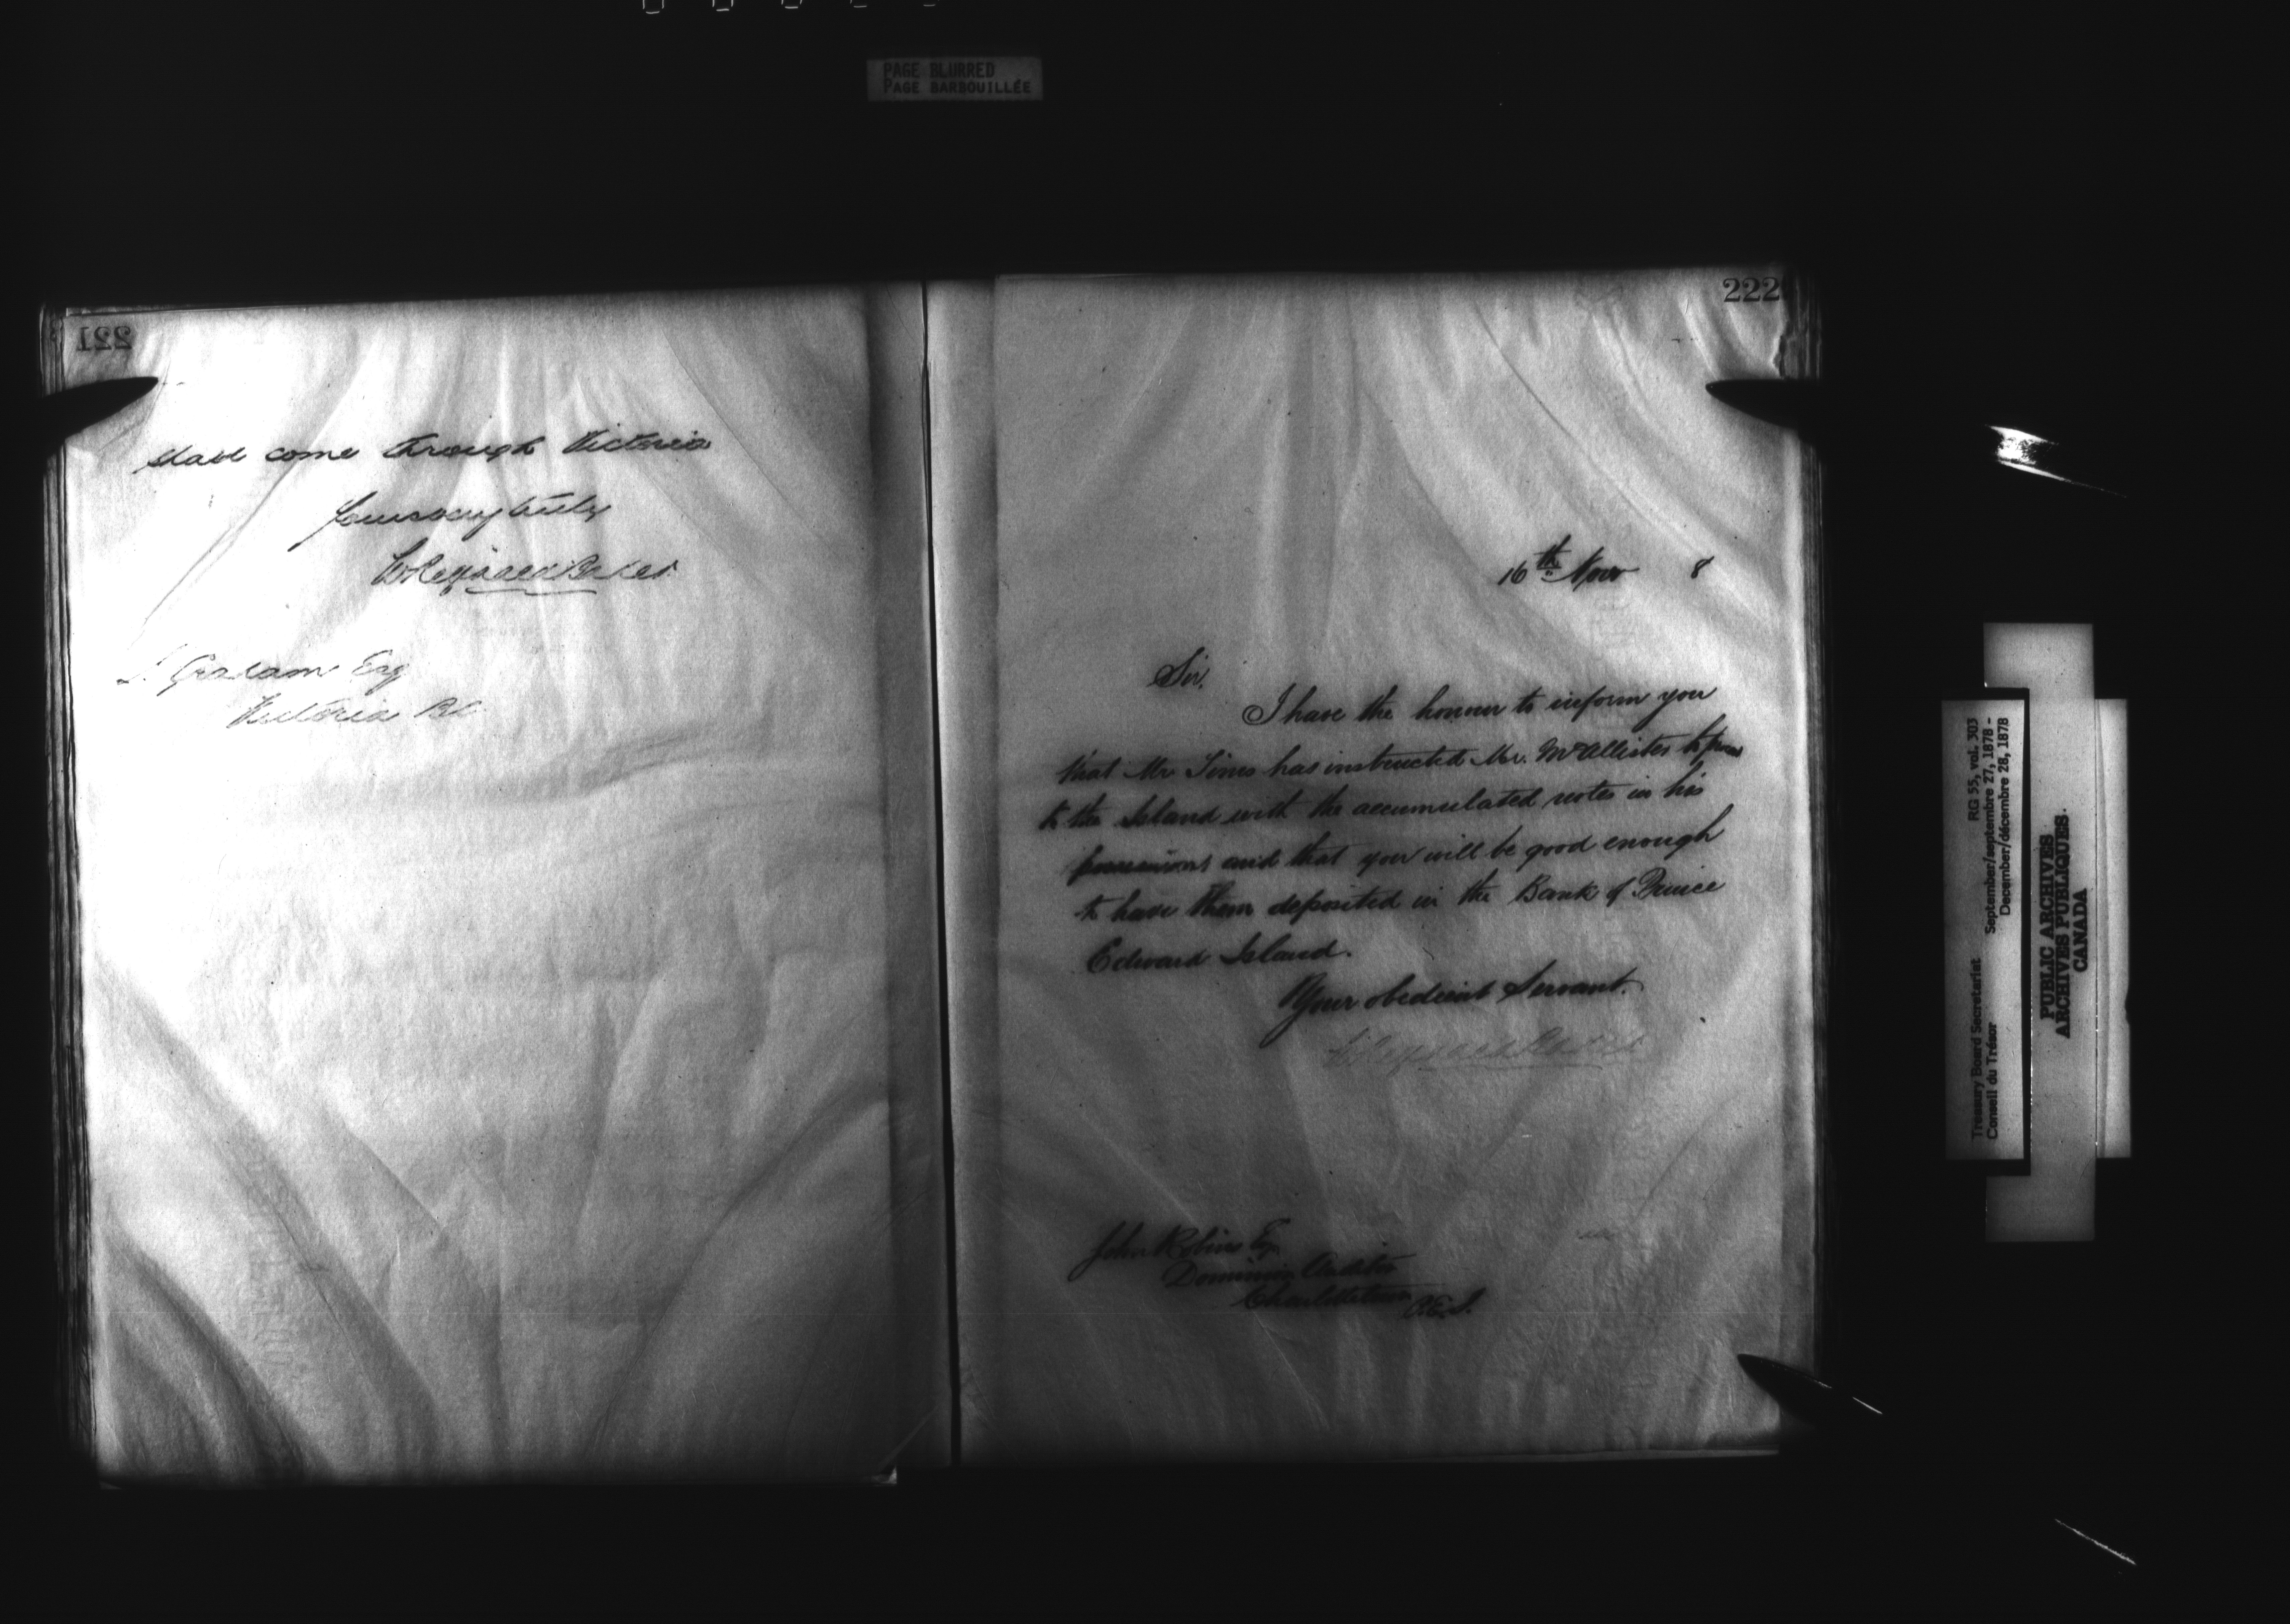 PAGE BLURRED
PAGE BARBOUILLÉE
221
shall come through Victoria
Yours very truly
Reginald Baker
Graham Esq
Victoria BC
222
16th Nov 8
Sir,
I have the honour to inform you
that Mr Tims has instructed Mr. McAllister to
to the Island with the accumulated notes in his
possession and that you will be good enough
to have them deposited in the Bank of Prince
Edward Island.
Your obedient Servant.
Reginald Baker
John Robins Esq
Dominion Auditor
Charlottetown P.E.I.
Treasury Board Secretariat RG 55, vol. 303
Conseil du Trésor September/septembre 27, 1878 -
December/décembre 28, 1878
PUBLIC ARCHIVES
ARCHIVES PUBLIQUES
CANADA